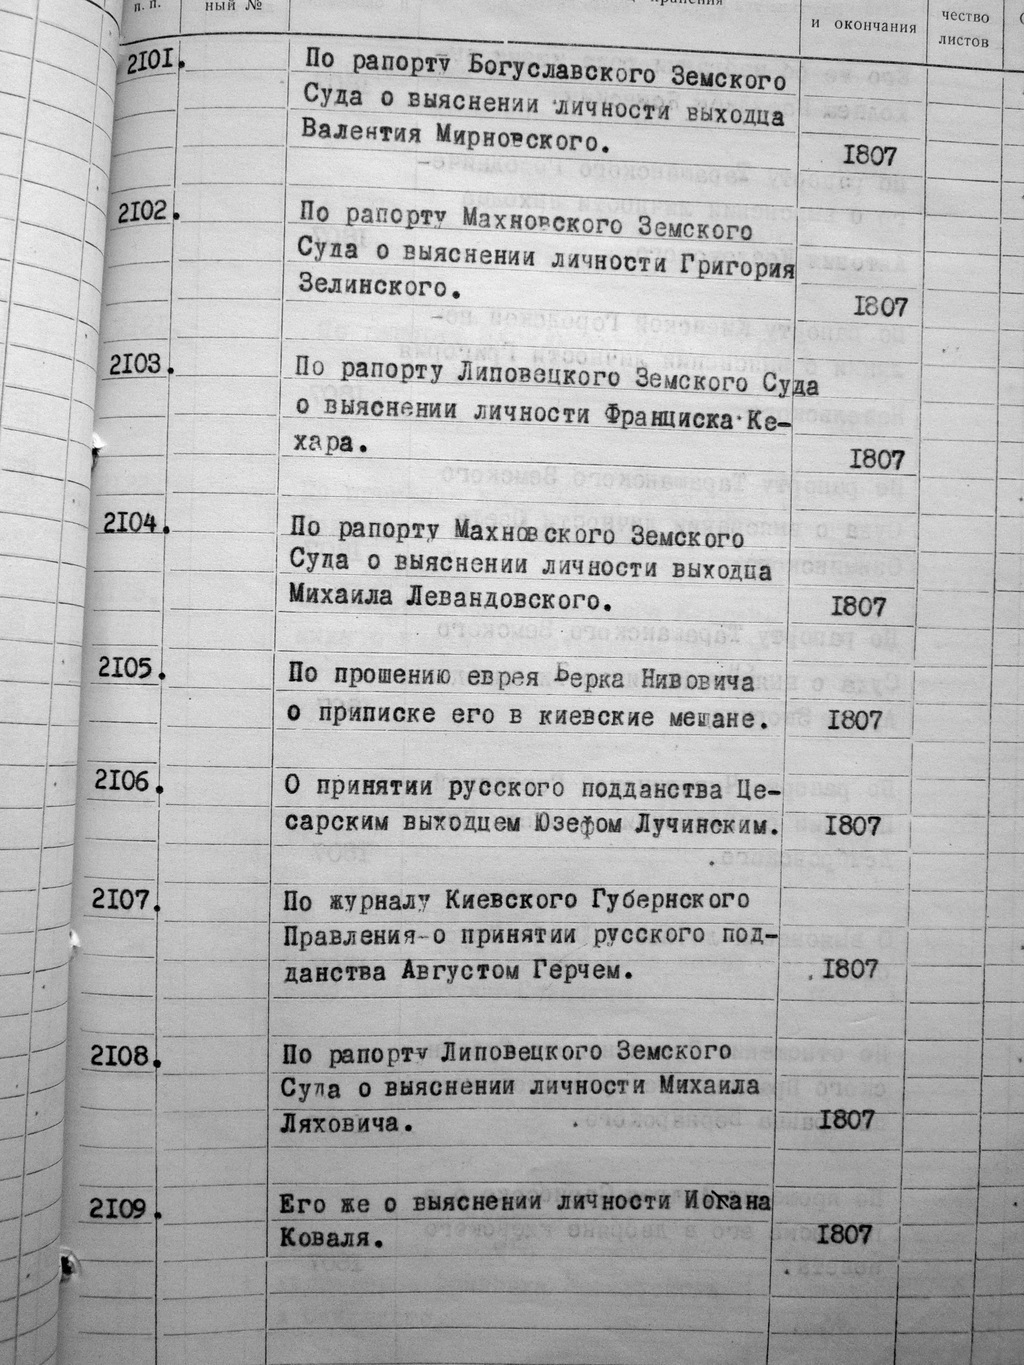 п. п.
ный №
хранения
и окончания
чество
листов
2101.
По рапорту Богуславского Земского
Суда о выяснении личности выходца
Валентия Мирновского.
1807
2102.
По рапорту Махновского Земского
Суда о выяснении личности Григория
Зелинского.
1807
2103.
По рапорту Липовецкого Земского Суда
о выяснении личности Франциска Ке-
хара.
1807
2104.
По рапорту Махновского Земского
Суда о выяснении личности выходца
Михаила Левандовского.
1807
2105.
По прошению еврея Берка Нивовича
о приписке его в киевские мещане.
1807
2106.
О принятии русского подданства Це-
сарским выходцем Юзефом Лучинским.
1807
2107.
По журналу Киевского Губернского
Правления о принятии русского под-
данства Августом Герчем.
1807
2108.
По рапорту Липовецкого Земского
Суда о выяснении личности Михаила
Ляховича.
1807
2109.
Его же о выяснении личности
Коваля.
1807